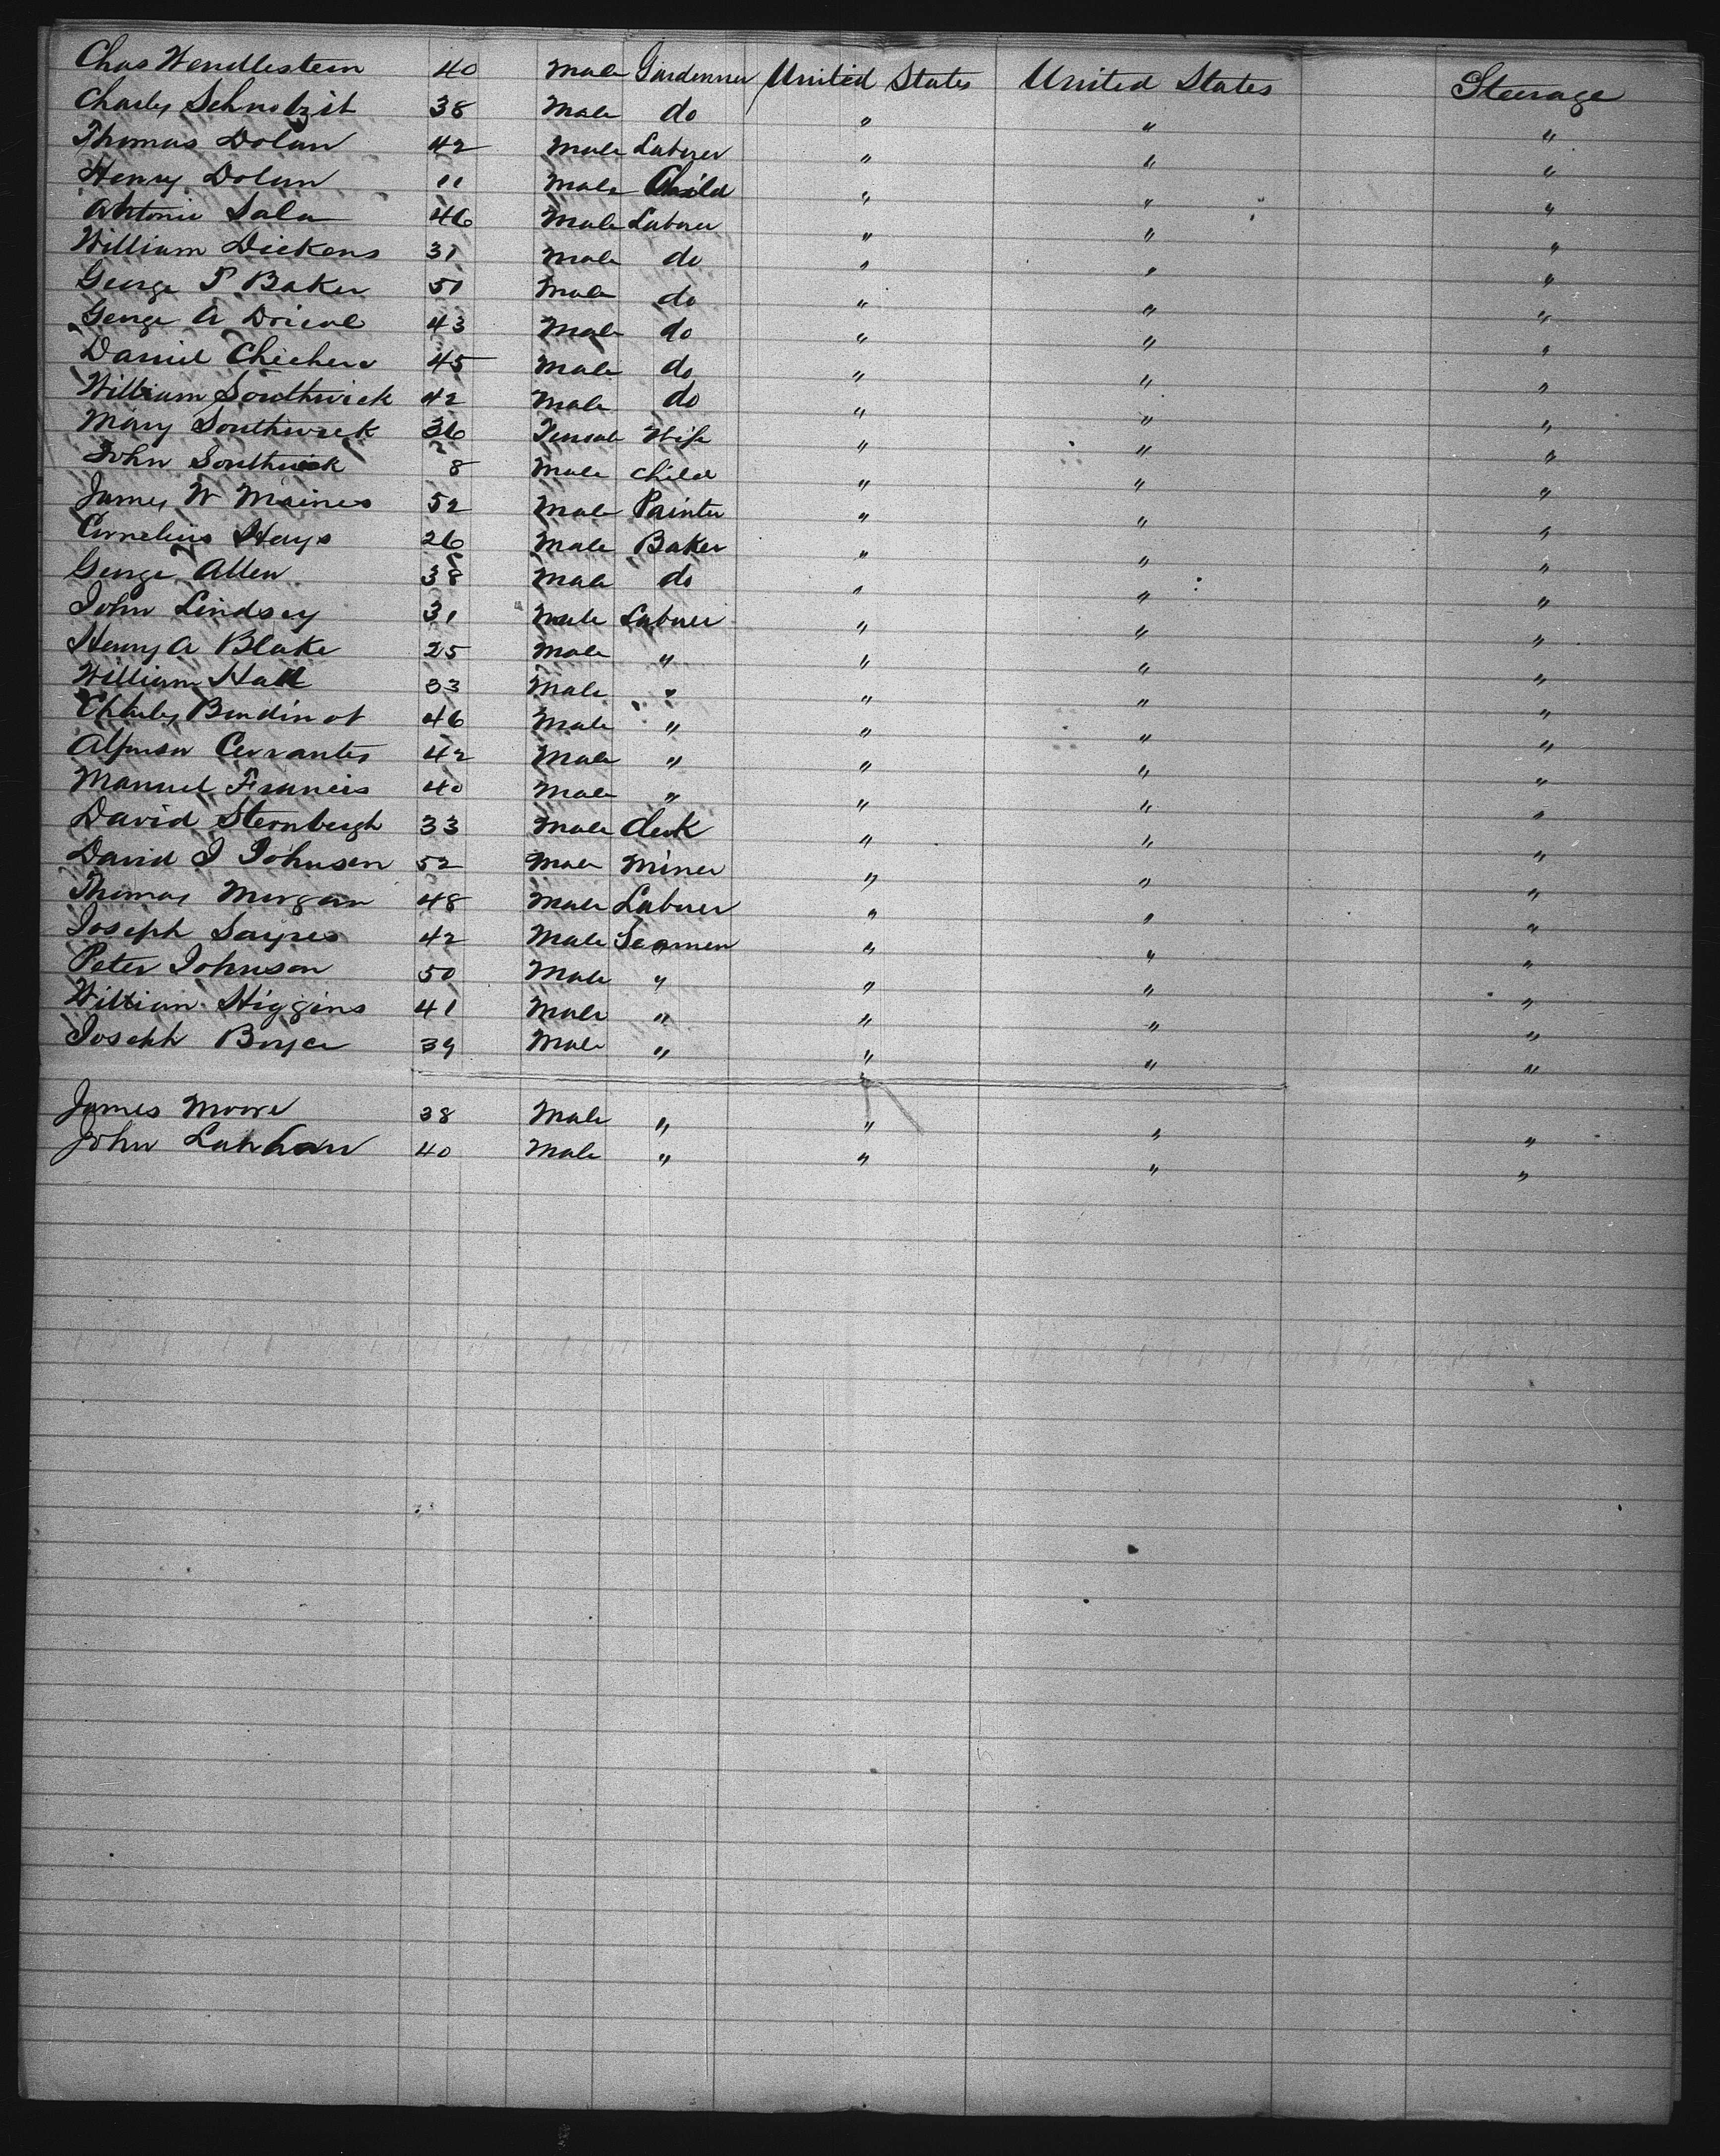 Chas Wendlestein 40 Male Gardenner United States United States Steerage
Charles 38 Male do " " "
Thomas Dolan 42 Male Laborer " " "
Henry Dolan 11 Male Child " " "
Antonio Sala 46 Male Laborer " " "
William Dickens 31 Male do " " "
George T Baker 51 Male do " " "
George A 43 Male do " " "
Daniel 45 Male do " " "
William Southwick 42 Male do " " "
Mary Southwick 36 Female Wife " " "
John Southwick 8 Male Child " " "
James W Maines 52 Male Painter " " "
Cornelius Hays 26 Male Baker " " "
George Allen 38 Male do " " "
John Lindsey 31 Male Laborer " " "
Henry A Blake 25 Male " " " "
William Hall 33 Male " " " "
Charles Boudinot 46 Male " " " "
Alfonso Cervantes 42 Male " " " "
Manuel Francis 40 Male " " " "
David Sternbergh 33 Male Clerk " " "
David J Johnson 52 Male Miner " " "
Thomas Morgan 48 Male Laborer " " "
Joseph Sayres 42 Male Seamen " " "
Peter Johnson 50 Male " " " "
William Higgins 41 Male " " " "
Joseph Boyce 39 Male " " " "
James Moore 38 Male " " " "
John Lanhan 40 Male " " " "